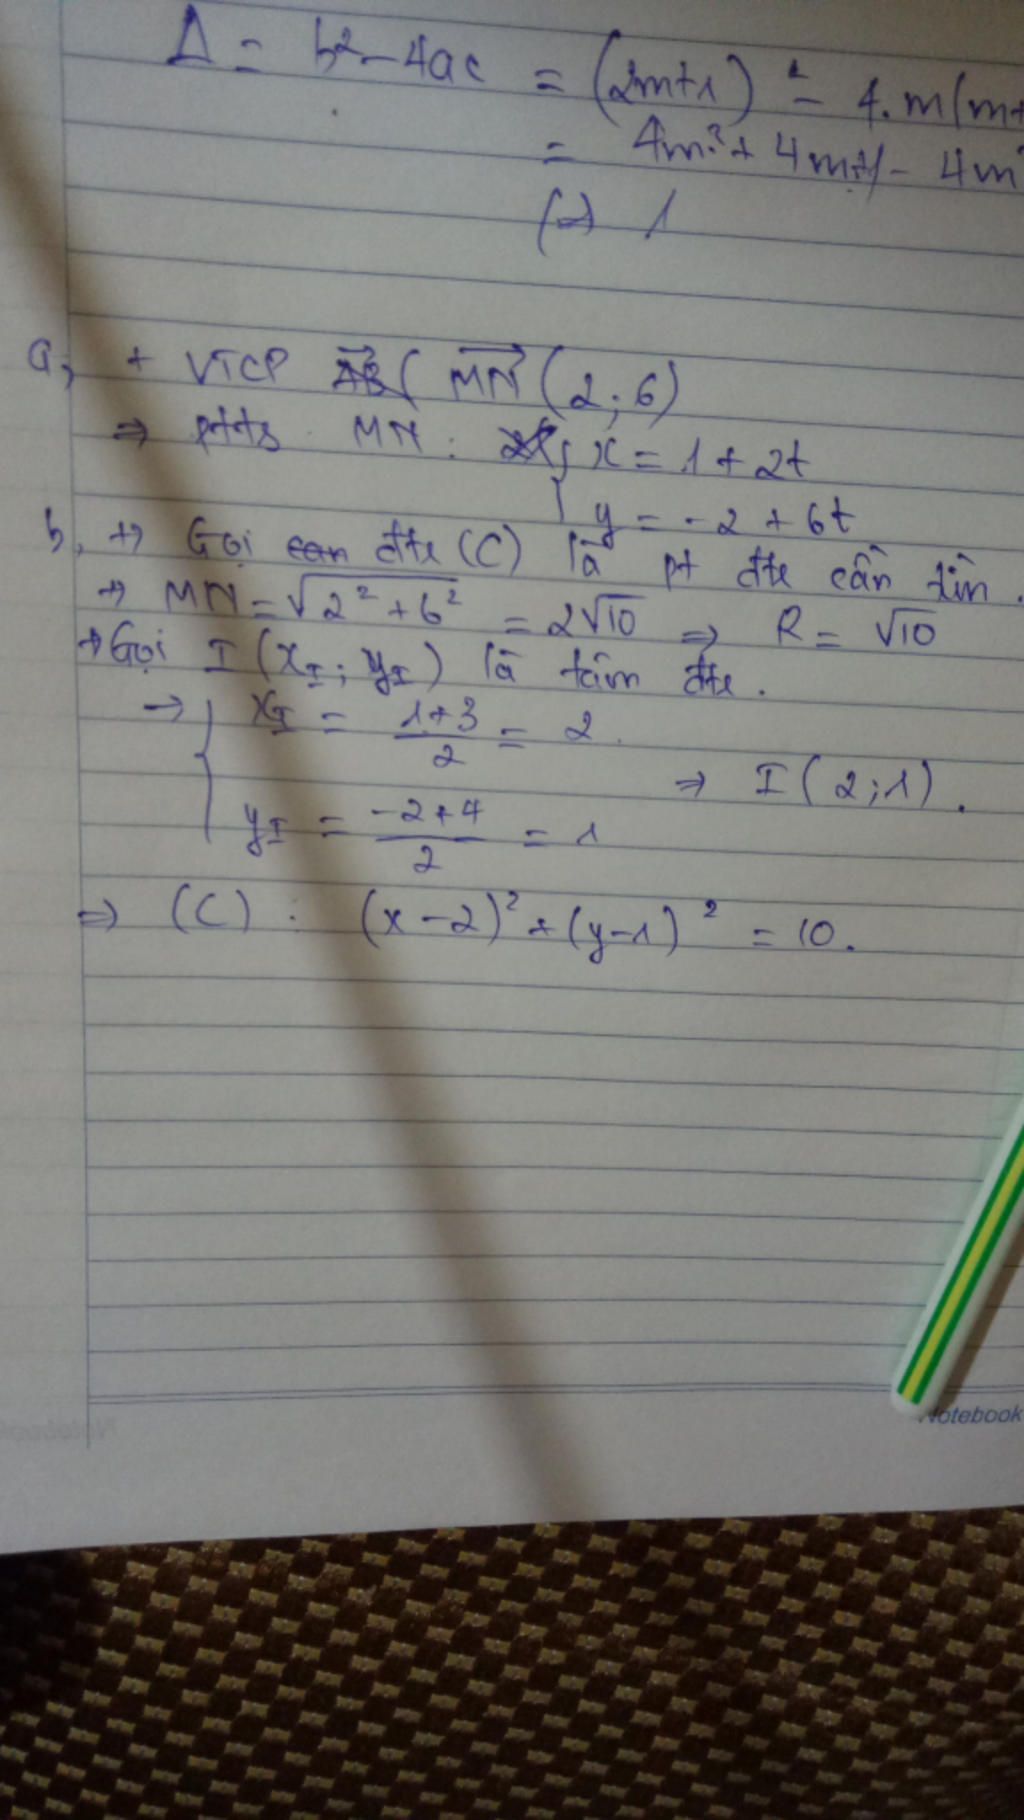 Δ = b² - 4ac = (2m+1)² - 4.m(m+
= 4m² + 4m+1 - 4m²
(=) 1
a, + VTCP MN (2; 6)
=> ptts MN: { x = 1 + 2t
y = -2 + 6t
b, +> Gọi đtr (C) là pt đtr cần tìm.
-> MN = √2² + 6² = 2√10 => R = √10
+ Gọi I (x_I; y_I) là tâm đtr.
-> { x_I = 1+3/2 = 2.
=> I (2;1).
y_I = -2+4/2 = 1
=> (C) : (x-2)² + (y-1)² = 10.
Notebook